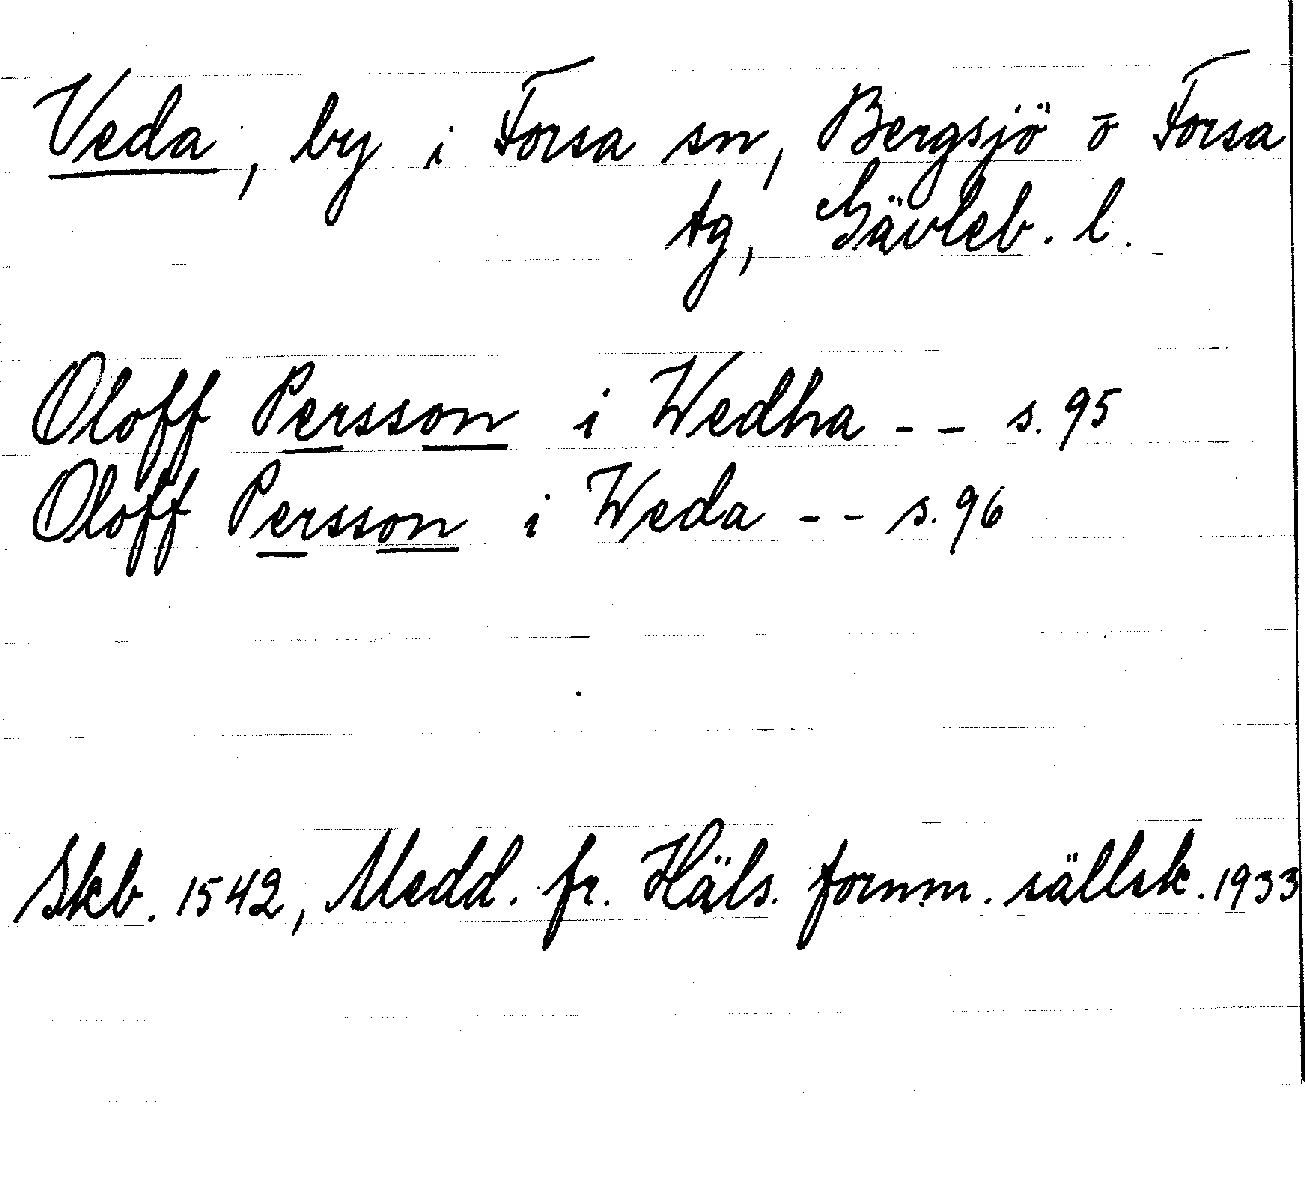 Veda, by i Forsa sn, Bergsjö o Forsa
tg, Gävleb. l.
Oloff Persson i Wedha -- s. 95
Oloff Persson i Weda -- s. 96
Skb. 1542, Medd. fr. Häls. fornm. sällsk. 1933